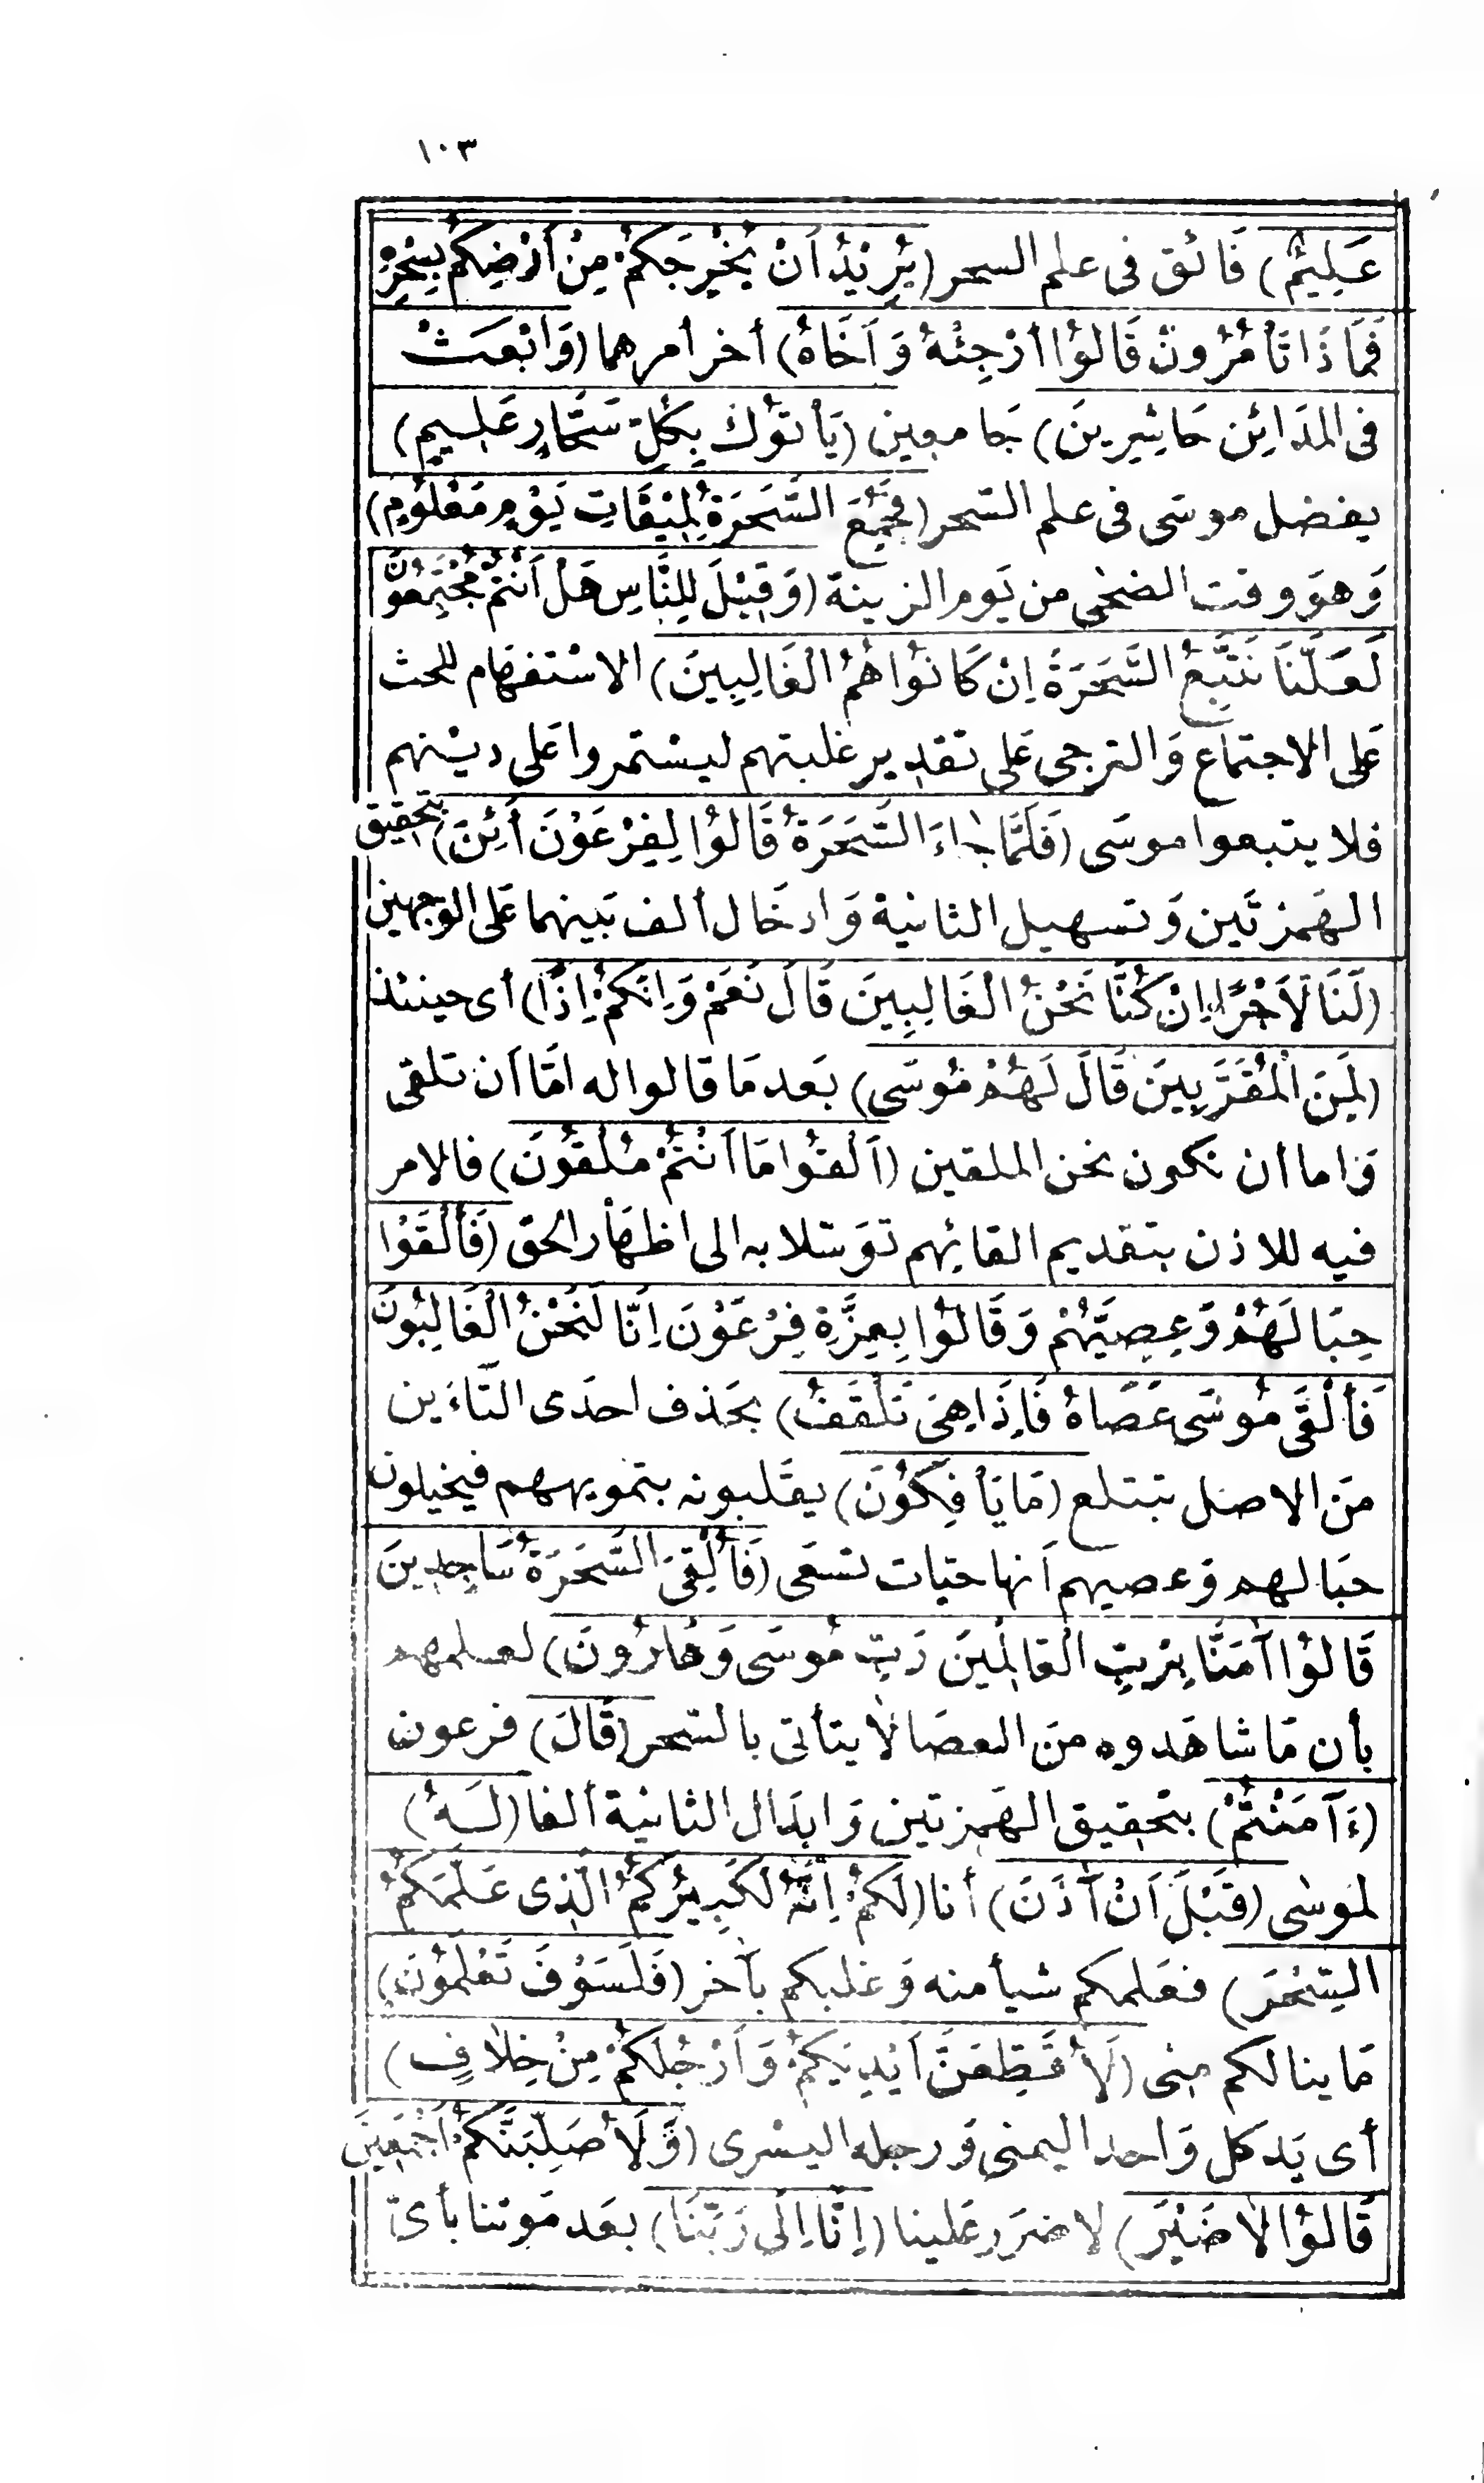 ١٠٣
عَلِيمٌ) فَائق فى علم السحر (يُرِيْدُ أَنْ يُخْرِجَكُمْ مِنْ أَرْضِكُمْ بِسِحْرِهِ
فَمَاذَا تَأْمُرُونَ قَالُوْا أَرْجِئْهُ وَأَخَاهُ) أخر أمرهما (وَابْعَثْ
فى المَدَائِن حَاشِرِينَ) جَامعين (يَأْتُوْكَ بِكُلِّ سَحَّارٍ عَلِيمٍ)
يفضل موسَى فى علم السّحر (فَجُمِعَ السَّحَرَةُ لِمِيْقَاتِ يَوْمٍ مَعْلُوْمٍ)
وَهوَ وقت الضحٰى من يَوم الزينة (وَقِيْلَ لِلنَّاسِ هَلْ أَنْتُمْ مُجْتَمِعُوْنَ
لَعَلَّنَا نَتَّبِعُ السَّحَرَةَ اِنْ كَانُوْا هُمُ الْغَالِبِينَ) الاسْتفهَام للحث
عَلى الاجتمَاع وَالترجى عَلى تقدير غلبتهم ليسْتمروا عَلى ديْنهم
فلا يتبعوا موسَى (فَلَمَّا جَاءَ السَّحَرَةُ قَالُوْا لِفِرْعَوْنَ أَئِنَ) بتحقيق
الهَمزتَين وَتسهيل الثانية وَادخَال ألف بَينهما عَلى الوجهين
(لَنَا لَأَجْرًا اِنْ كُنَّا نَحْنُ الْغَالِبِينَ قَالَ نَعَمْ وَاِنَّكُمْ اِذًا) أى حينئذ
(لَمِنَ الْمُقَرَّبِينَ قَالَ لَهُمْ مُوسَى) بَعد مَا قالوا له امّا أن تلقى
وَاما أن نكون نحن الملقين (أَلْقُوْا مَا أَنْتُمْ مُلْقُوْنَ) فالامر
فيه للاذن بتقديم القائهم توَسّلا به الى اظهَار الحَق (فَأَلْقَوْا
حِبَالَهُمْ وَعِصِيَّهُمْ وَقَالُوْا بِعِزَّةِ فِرْعَوْنَ اِنَّا لَنَحْنُ الْغَالِبُوْنَ
فَأَلْقَى مُوسَى عَصَاهُ فَإِذَا هِىَ تَلَقَّفُ) بحَذف احدَى التّاءَين
مَن الاصل تبتلع (مَا يَأْفِكُوْنَ) يقَلبونه بتمويههم فيخيلون
حبَالهم وَعصيهم أنها حيّات تسعَى (فَأُلْقِىَ السَّحَرَةُ سَاجِدِينَ
قَالُوْا آمَنَّا بِرَبِّ الْعَالَمِينَ رَبِّ مُوسَى وَهَارُونَ) لعلمهم
بأن مَا شاهَدوه مَن العصَا لا يتأتى بالسّحر (قَالَ) فرعون
(ءَآمَنْتُمْ) بتحقيق الهَمزتين وَابدَال الثانية ألفا (لَهُ)
لموسٰى (قَبْلَ أَنْ آذَنَ) أنا (لَكُمْ اِنَّهُ لَكَبِيْرُكُمُ الَّذِى عَلَّمَكُمُ
السِّحْرَ) فعَلمكم شيأ منه وَغلبكم بآخر (فَلَسَوْفَ تَعْلَمُوْنَ)
مَا ينالكم منى (لَأُقَطِّعَنَّ أَيْدِيَكُمْ وَأَرْجُلَكُمْ مِنْ خِلَافٍ)
أى يَد كل وَاحد اليمنى وَرجله اليسْرى (وَّلَأُصَلِّبَنَّكُمْ أَجْمَعِينَ
قَالُوْا لَا ضَيْرَ) لا ضرَر عَلينا (اِنَّا اِلَى رَبِّنَا) بعَد مَوتنا بأىّ